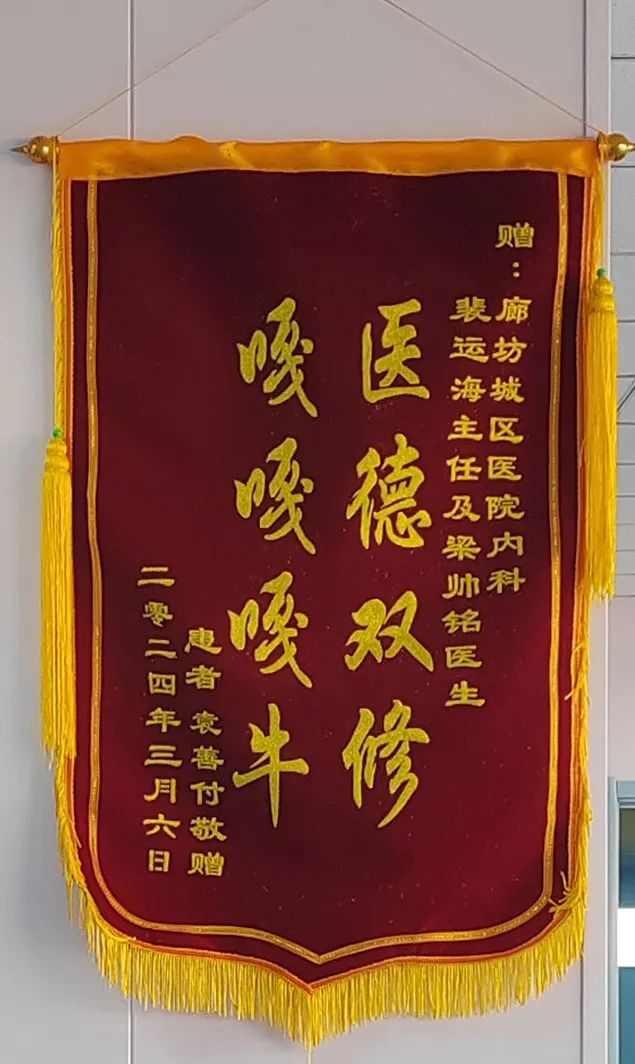 赠：廊坊城区医院内科
裴运海主任及梁帅铭医生
医德双修
嘎嘎嘎牛
患者 袁善付敬赠
二零二四年三月六日